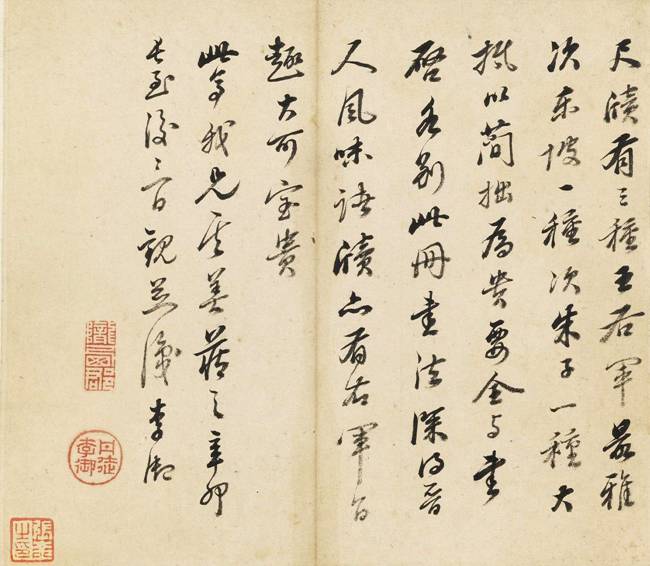 尺牘有三種王右軍最雅
次東坡一種次朱子一種大
抵以簡拙為貴要全与書
啓各別此冊書法深得晉
人風味語牘亦有右軍
趣大可寶貴
我兄其善藏之辛卯
長至後三日觀並識李御
丹徒李御